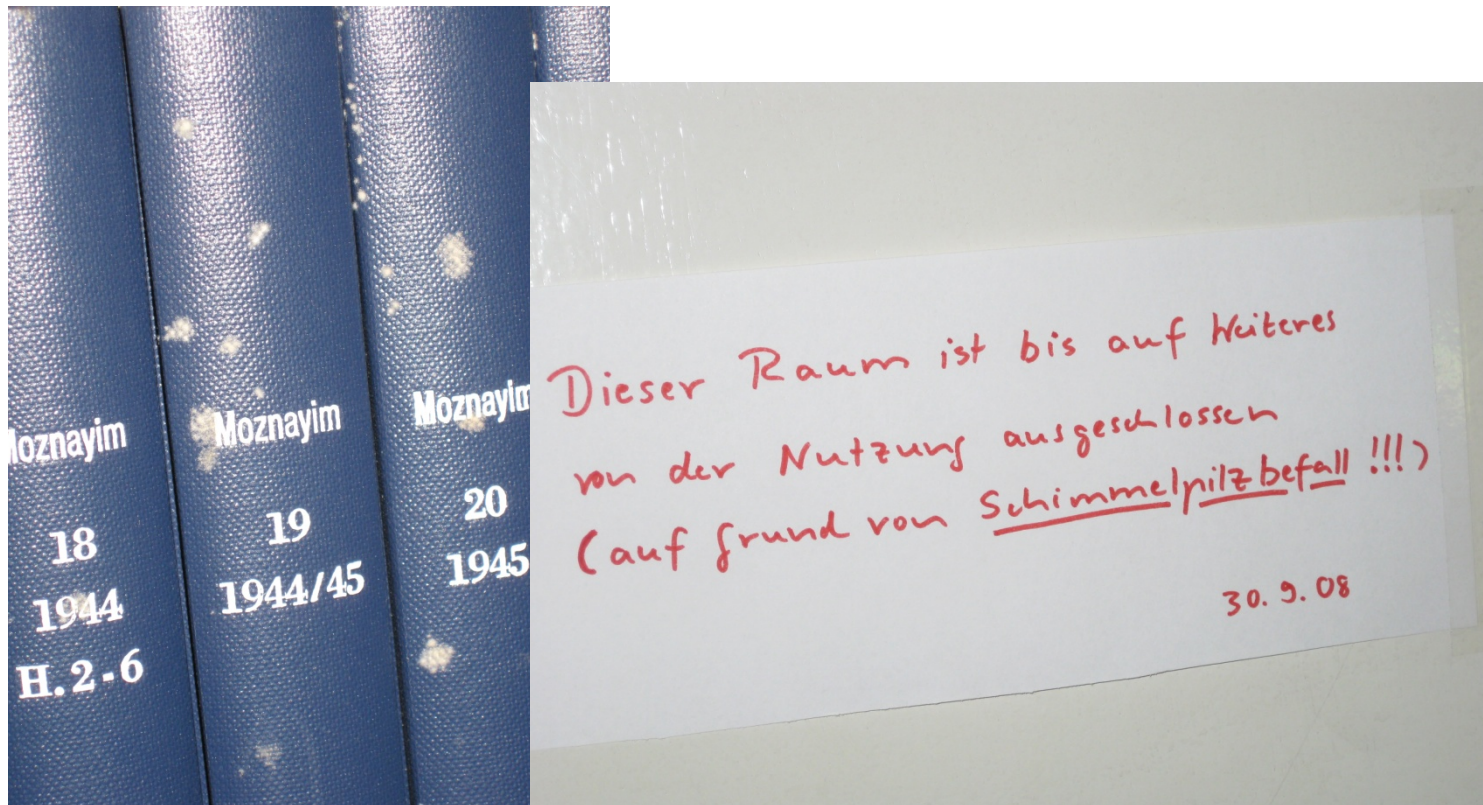 Moznayim
18
1944
H.2-6
Moznayim
19
1944/45
Moznayim
20
1945
Dieser Raum ist bis auf Weiteres
von der Nutzung ausgeschlossen
(auf Grund von Schimmelpilzbefall !!!)
30. 9. 08